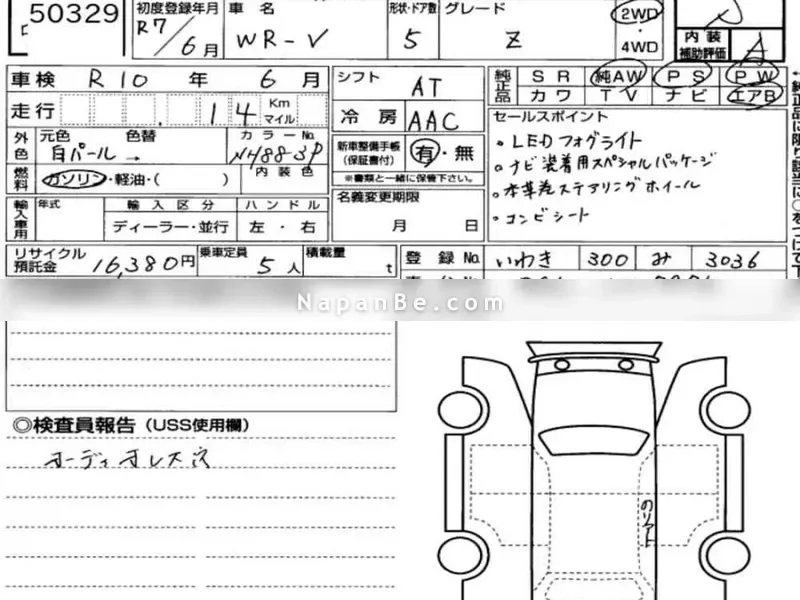 50329
初度登録年月
R7/6月
車名
WR-V
形状・ドア数
5
グレード
Z
2WD
・
4WD
内装
補助評価
A
車検 R10年 6月
走行 14 Km マイル
シフト
AT
冷房
AAC
純正品
SR 純AW PS PW
カワ TV ナビ エアB
外色
元色 色替 カラーNo.
白パール→ NH883P
燃料
ガソリン・軽油・( )
内装色
新車整備手帳
(保証書付)
有・無
※書類と一緒に保管下さい。
セールスポイント
・LEDフォグライト
・ナビ装着用スペシャルパッケージ
・本革巻ステアリングホイール
・コンビシート
輸入車用
年式
輸入区分
ハンドル
ディーラー・並行
左・右
名義変更期限
月 日
リサイクル
預託金
16,380円
乗車定員
5人
積載量
t
登録No.
いわき 300 み 3036
NapanBe.com
◎検査員報告(USS使用欄)
オーディオレス